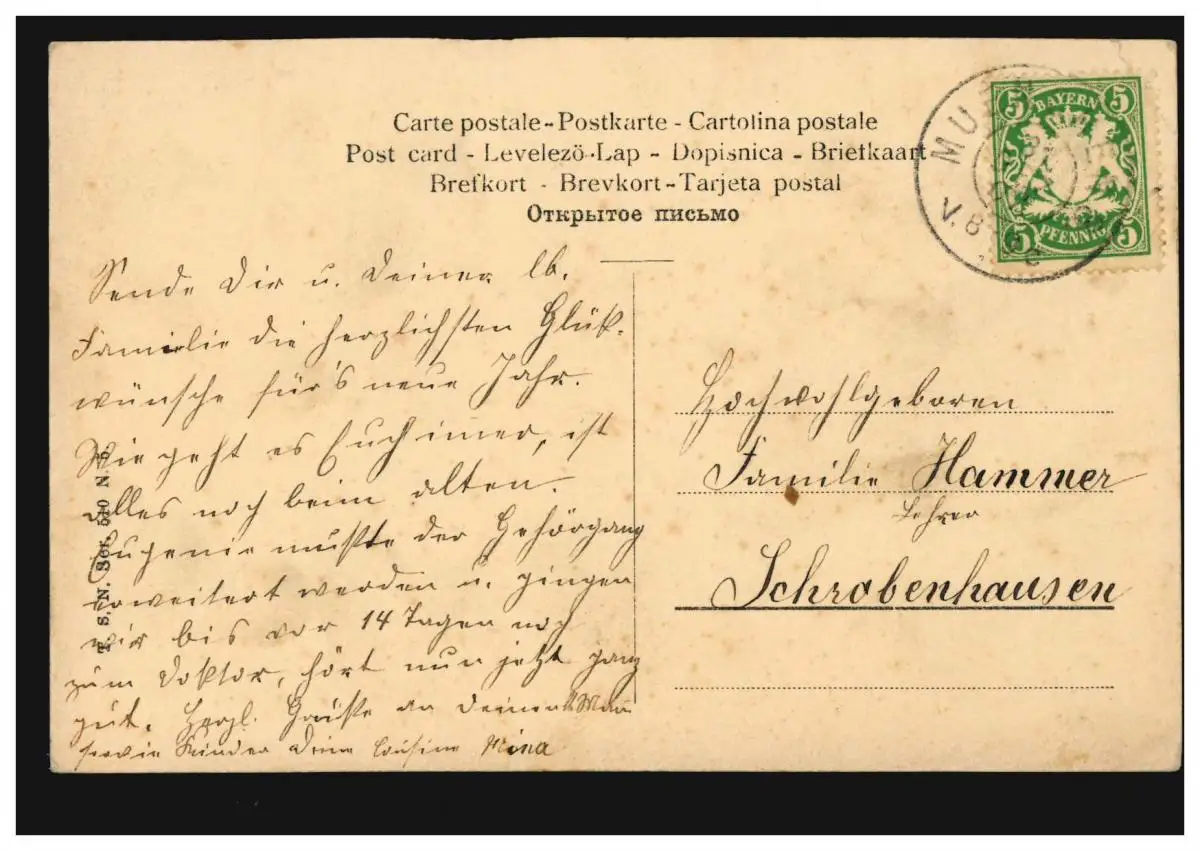 Carte postale - Postkarte - Cartolina postale
Post card - Levelezö-Lap - Dopisnica - Briefkaart
Brefkort - Brevkort - Tarjeta postal
Открытое письмо
BAYERN
5 5
5 5
PFENNIG
V. 8-9
Sende Dir u. Deiner lb.
Familie die herzlichsten Glück-
wünsche für's neue Jahr.
Wie geht es Euch immer, ist
alles noch beim alten.
Eugenie mußte der Gehörgang
erweitert werden u. gingen
wir bis vor 14 Tagen noch
zum Doktor, hört nun jetzt ganz
gut. Herzl. Grüße an Deinen Mann
sowie Kinder Deine Cousine Mina
Hochwohlgeboren
Familie Hammer
Lehrer
Schrobenhausen
T. S. N. Ser. 510 N. 5.